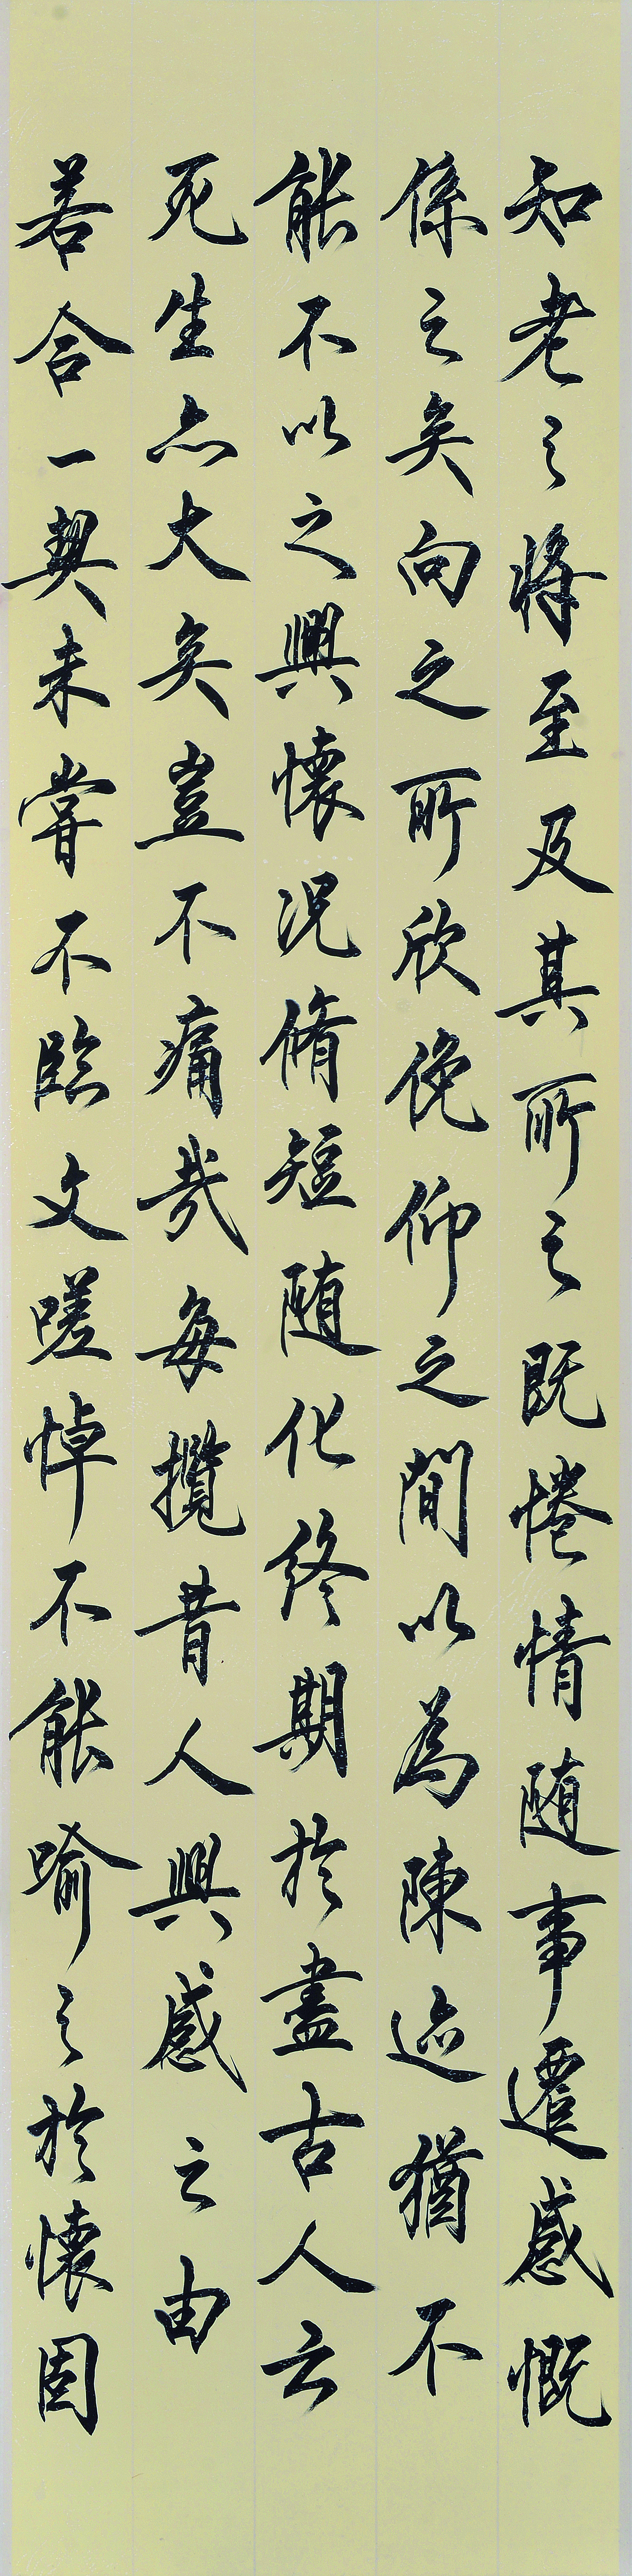 知老之将至及其所之既惓情随事遷感慨
係之矣向之所欣俛仰之間以為陳迹猶不
能不以之興懷況脩短随化終期於盡古人云
死生亦大矣豈不痛哉每攬昔人興感之由
若合一契未嘗不臨文嗟悼不能喻之於懷固